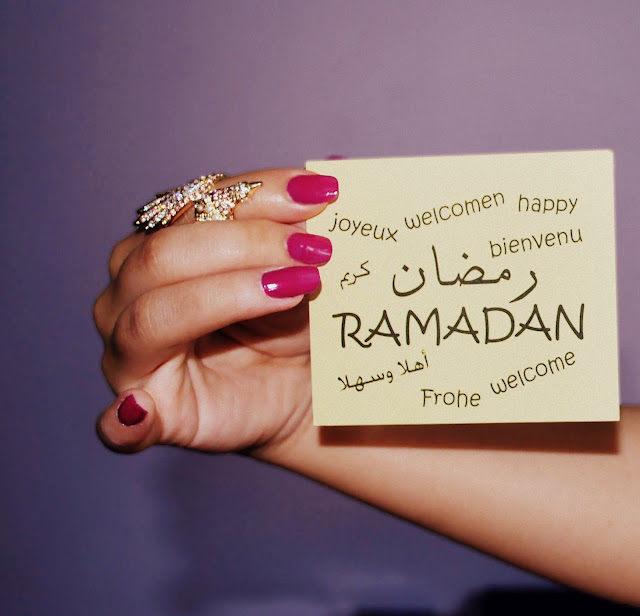 joyeux welcomen happy
bienvenu
كريم رمضان
RAMADAN
أهلا وسهلا
Frohe welcome